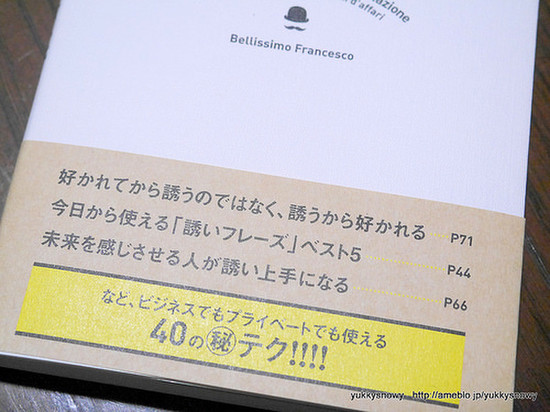 d'affari
Bellissimo Francesco
好かれてから誘うのではなく、誘うから好かれる P71
今日から使える「誘いフレーズ」ベスト5 P44
未来を感じさせる人が誘い上手になる P66
など、ビジネスでもプライベートでも使える
40の㊙テク!!!!
yukkysnowy http://ameblo.jp/yukkysnowy